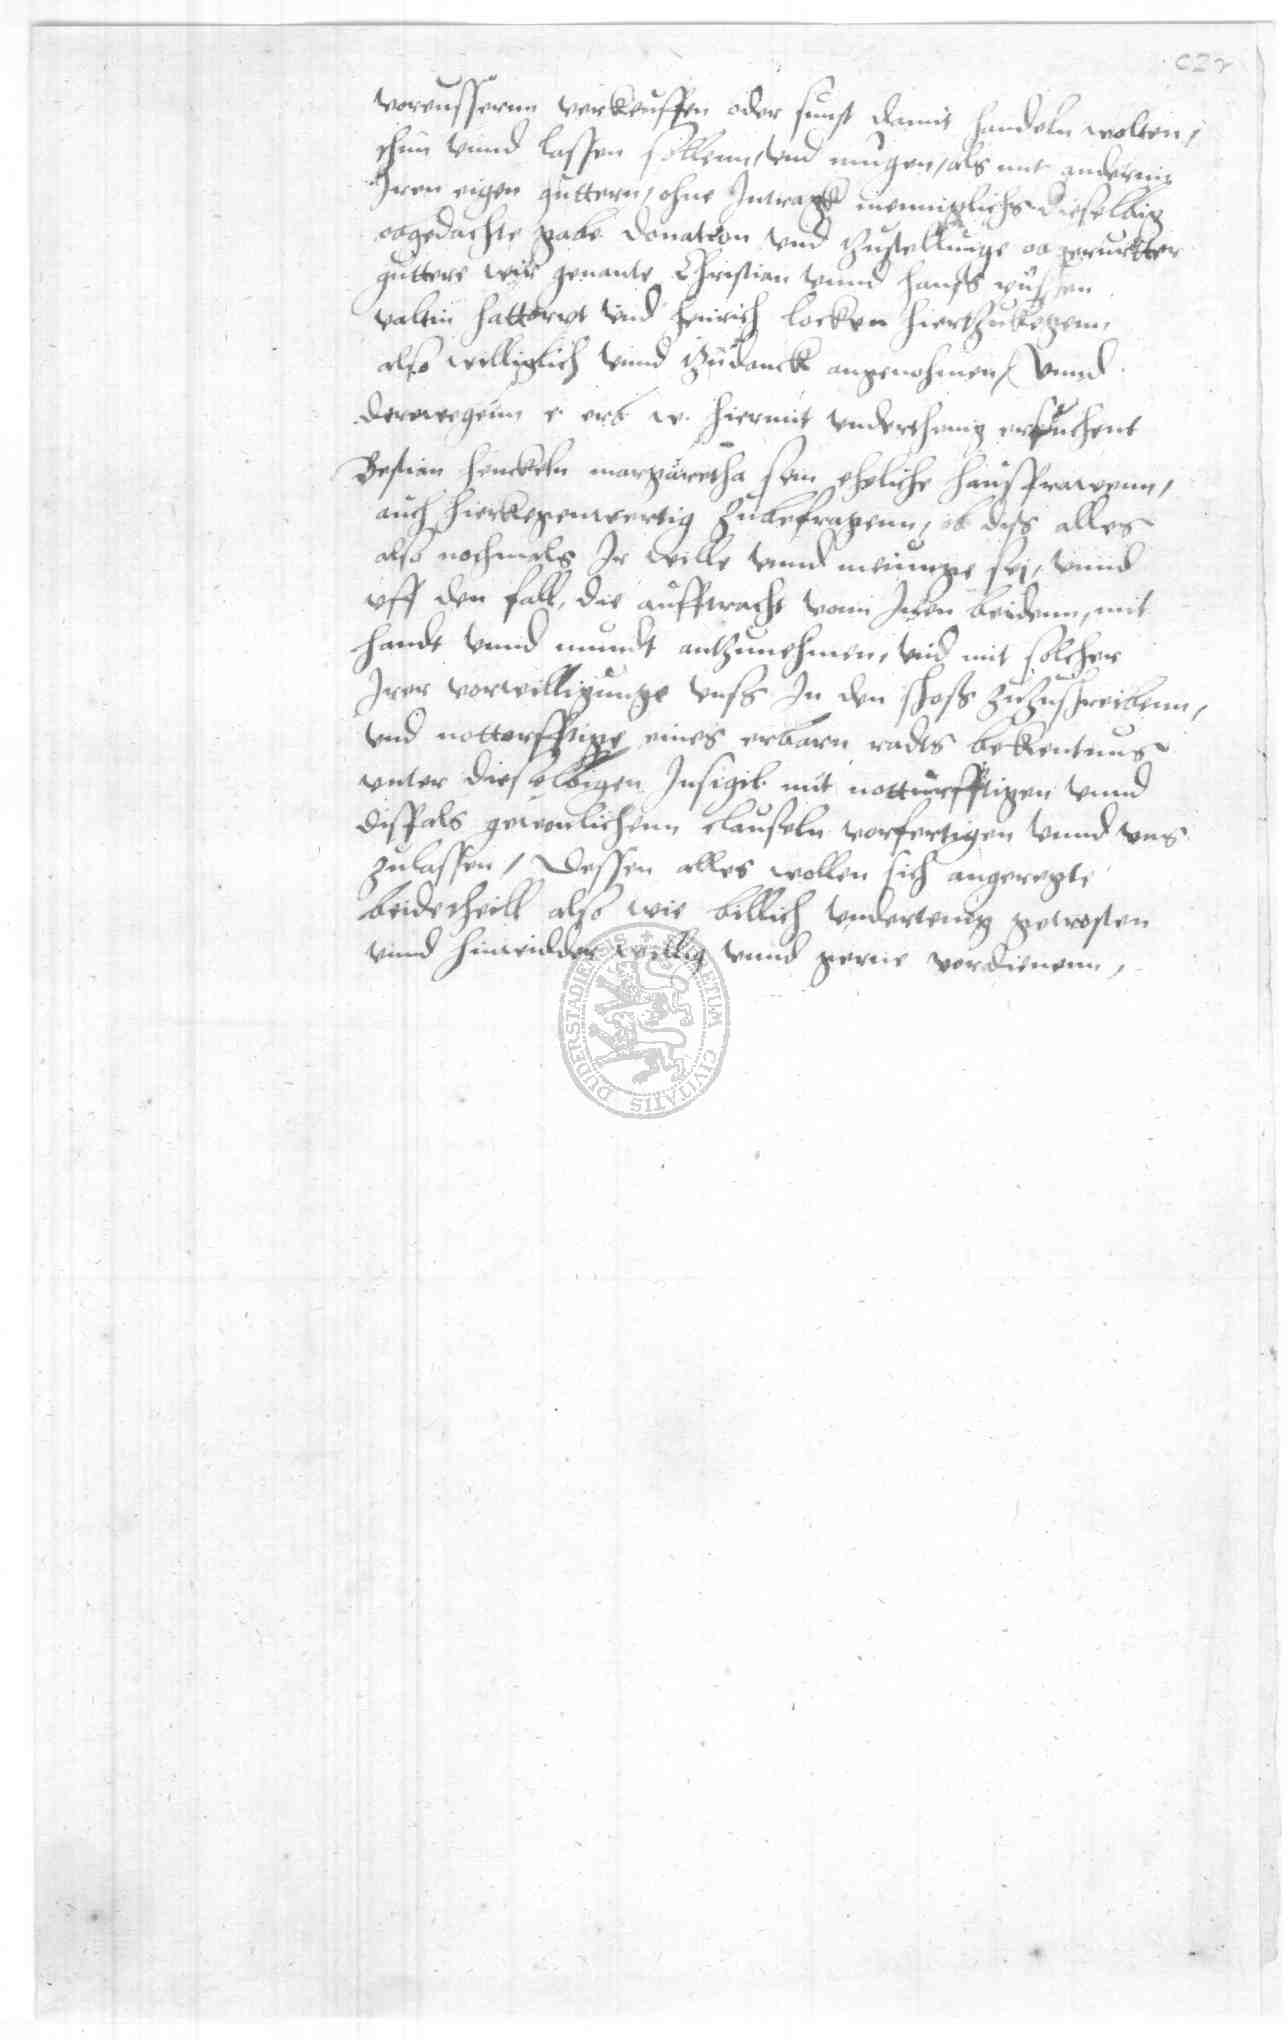 voreussernn verkeuffen oder sunst damit handeln wolten,
thun unnd lassen sollenn, und mugen, als mit andernn
Iren eigen guttern, ohne Intragk menniglichs dieselbig
obgedachte gabe donation und Zustellunge obgerurtter
guttere wir genante Christian unnd hanss
valtin hattorpt und heinrich locken hierzukegenn,
also williglich unnd zudanck angenohmen, Unnd
derwegenn e erb w. hiermit underthenig ersuchent
Bestian henckeln margaretha sein eheliche haussfrawenn,
auch hierkegenwertig zubefragenn, ob diss alles
also nochmals Ir wille unnd meinunge sej, unnd
uff den fall, die aufftracht vonn Inen beidenn, mit
handt unnd mundt antzunehmen, und mit solcher
Irer vorwilligunge unss In den schoss zuzuschreibenn,
und notturfftige eines erbarn radts bekentnus
unter dieselbigen Insigil mit notturfftigen unnd
dissfals gewonlichenn clauseln vorfertigen unnd uns
zulassen, Dessen alles wollen sich angeregte
beidetheill also wie billich undertenig getrosten
unnd hinwidder willig unnd gerne vordienenn,
SECRETUM CIVITATIS DUDERSTADIENSIS